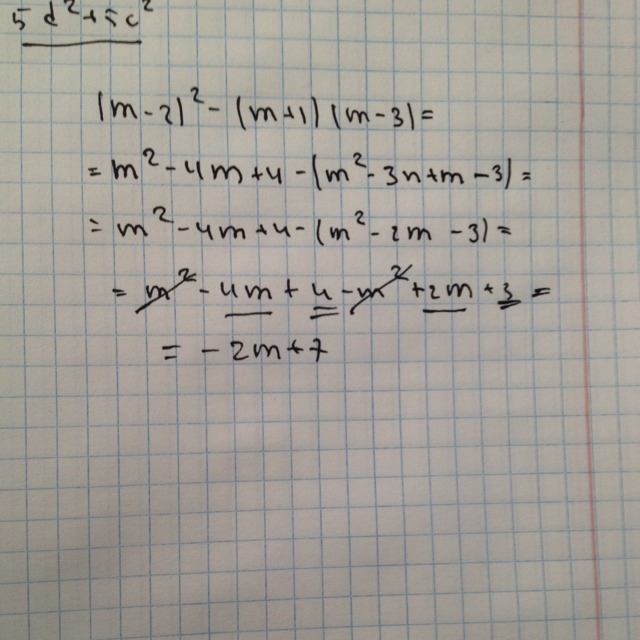 5 d² + 5c²
(m-2)² - (m+1)(m-3) =
= m² - 4m + 4 - (m² - 3m + m - 3) =
= m² - 4m + 4 - (m² - 2m - 3) =
= m² - 4m + 4 - m² + 2m + 3 =
= - 2m + 7